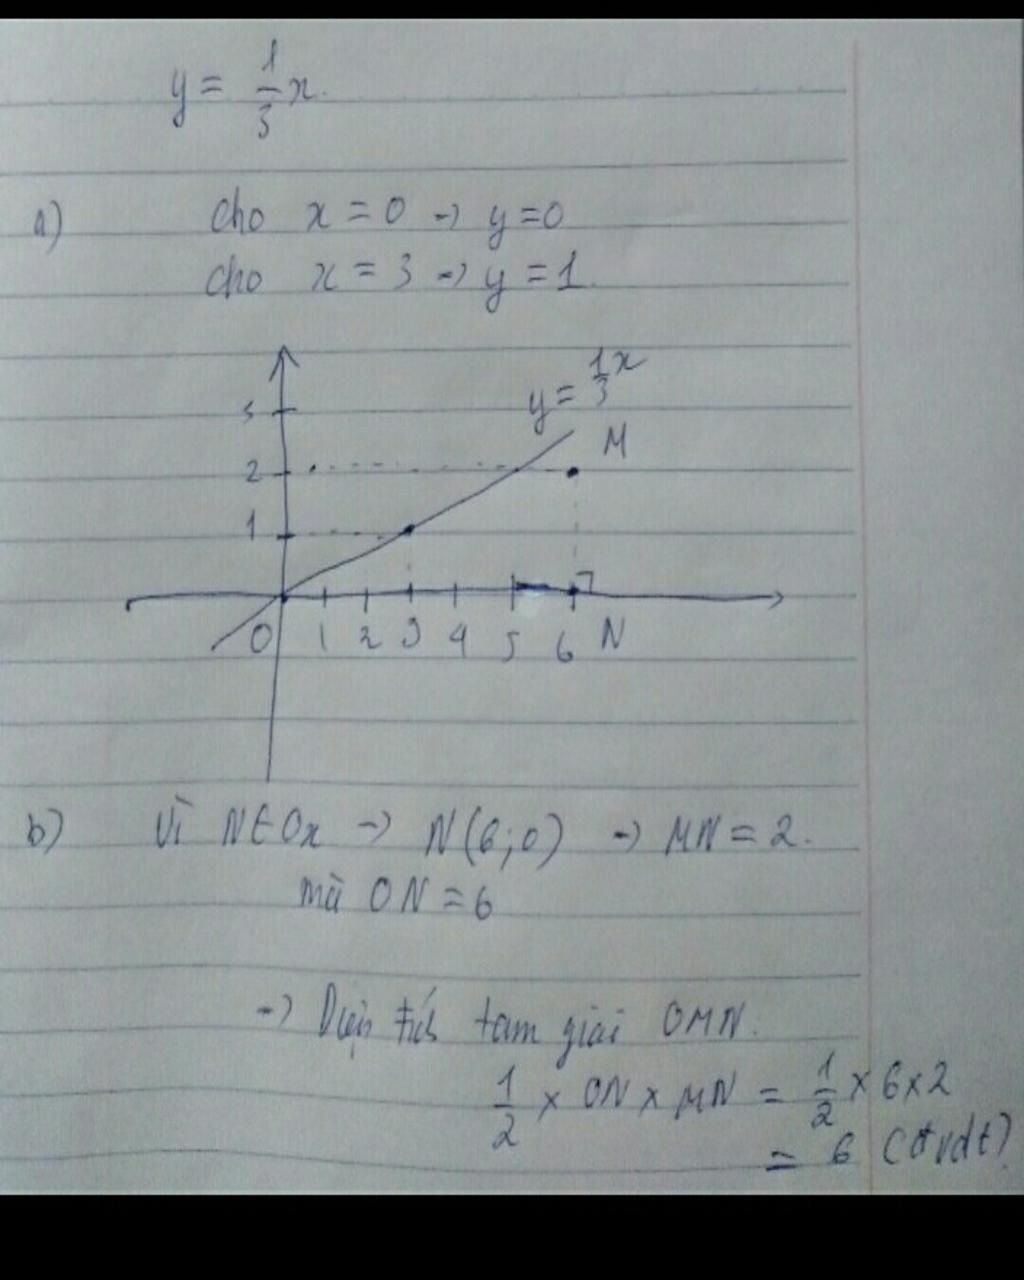 y = 1/3 x.
a) cho x = 0 → y = 0
cho x = 3 → y = 1.
y = 1/3 x
M
2
1
O 1 2 3 4 5 6 N
b) Vì N ∈ Ox → N(6;0) → MN = 2.
mà ON = 6
→ Diện tích tam giác OMN.
1/2 × ON × MN = 1/2 × 6 × 2
= 6 (đvdt)